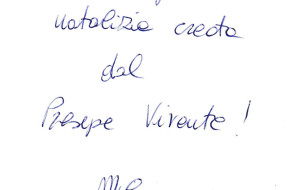 natalizia creata
dal
Presepe Vivente!